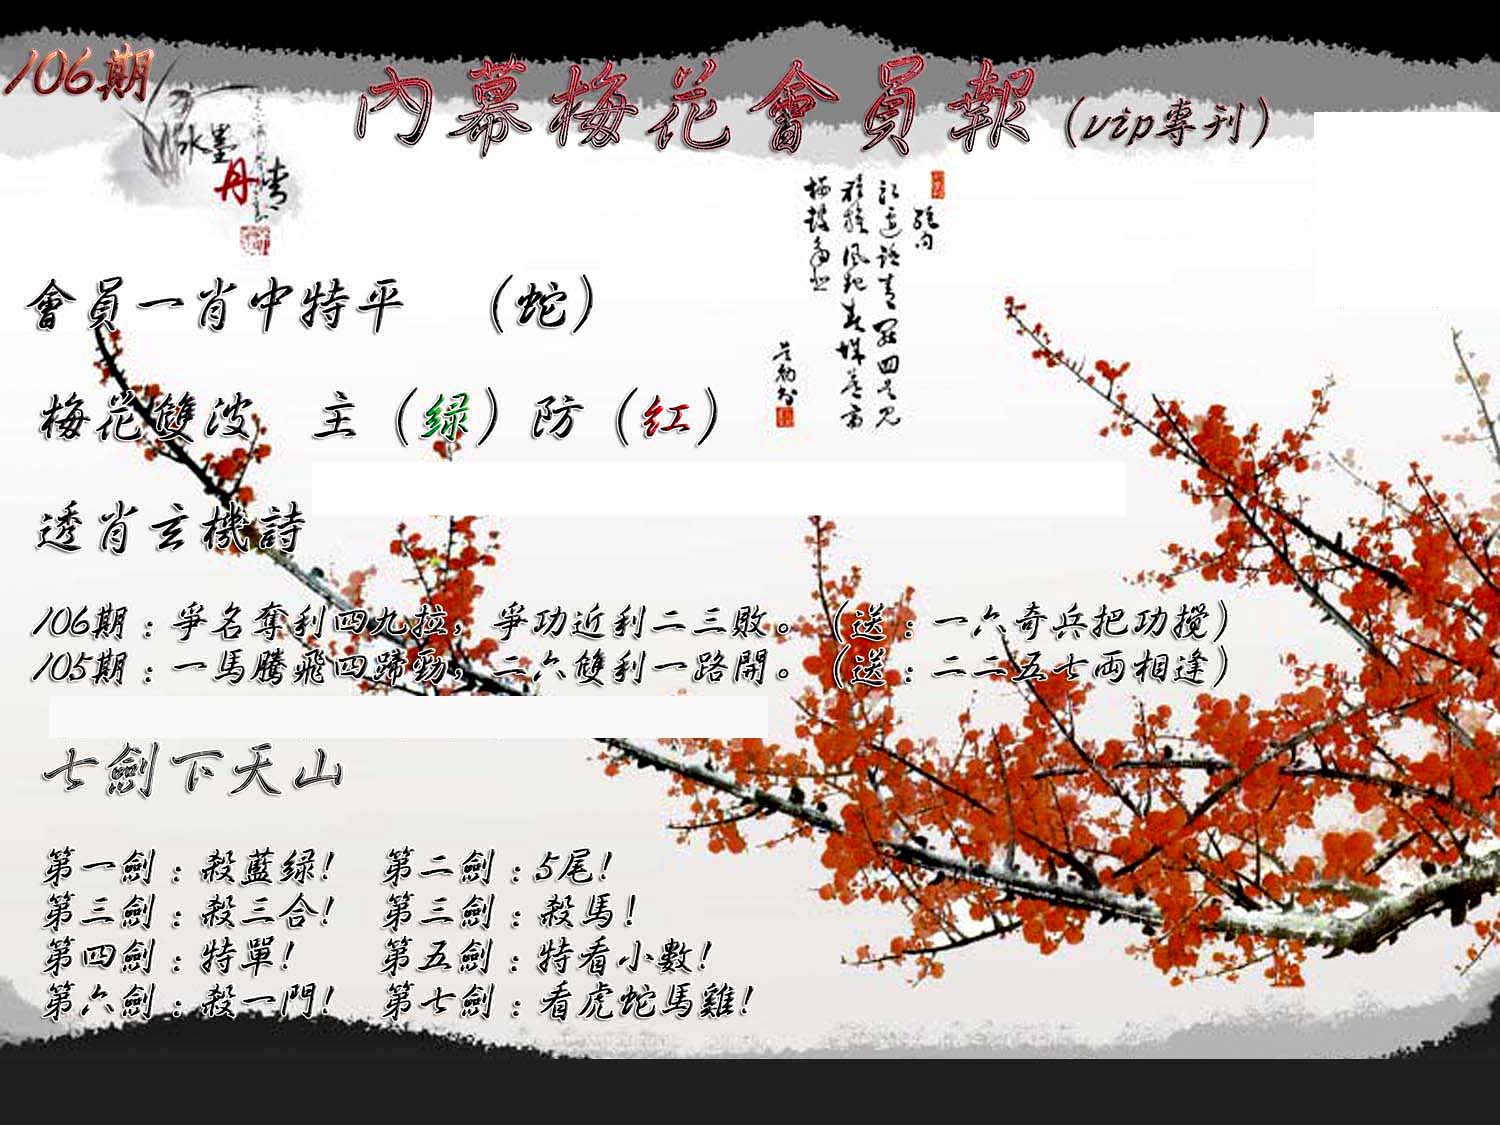 106期
內幕梅花會員報（vip專刊）
水墨
丹青
會員一肖中特平　（蛇）
梅花雙波　主（绿）防（红）
透肖玄機詩
106期：爭名奪利四九拉，爭功近利二三敗。（送：一六奇兵把功攪）
105期：一馬騰飛四蹄勁，二六雙利一路開。（送：二二五七兩相逢）
七劍下天山
第一劍：殺藍绿！　第二劍：5尾！
第三劍：殺三合！　第三劍：殺馬！
第四劍：特單！　第五劍：特看小數！
第六劍：殺一門！　第七劍：看虎蛇馬雞！